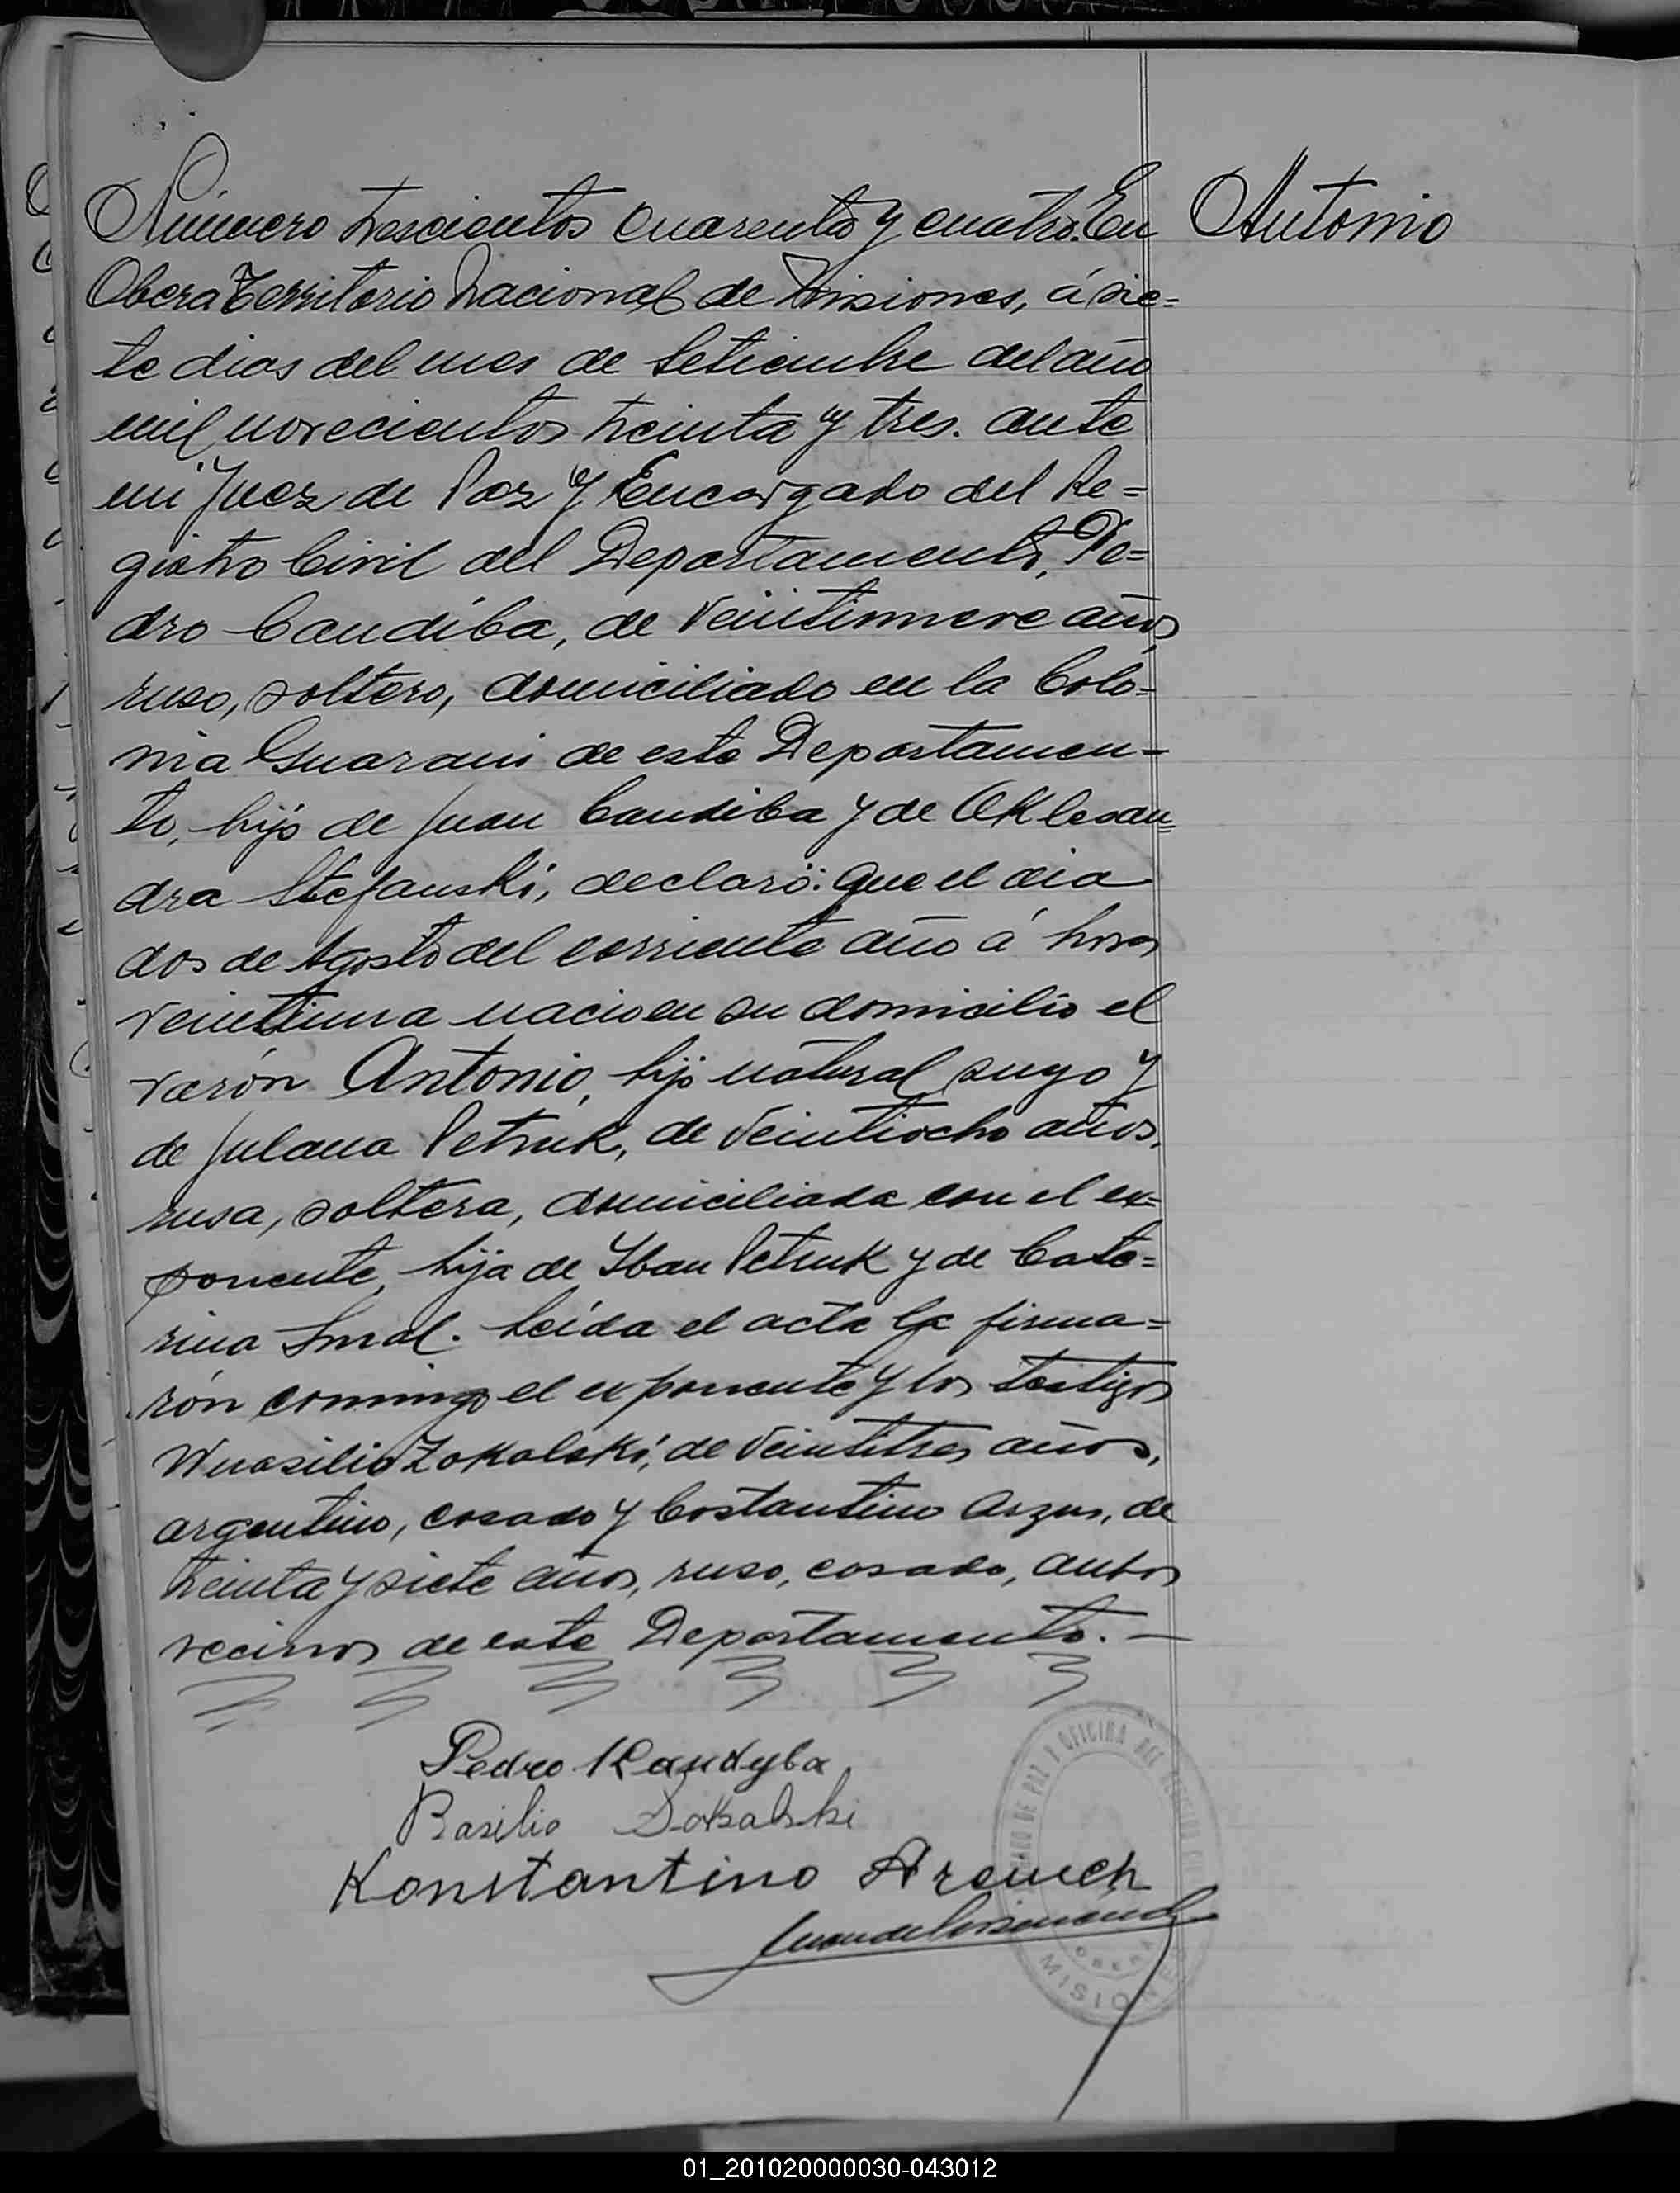 Antonio
Número trescientos cuarenta y cuatro. En
Obera Territorio Nacional de Misiones, á sie=
te dias del mes de Setiembre del año
mil novecientos treinta y tres. ante
mi Juez de Paz y Encargado del Re=
gistro Civil del Departamento, Pe=
dro Candiba, de veintinueve años
ruso, soltero, domiciliado en la Colo=
nia Guarani de este Departamen=
to, hijo de Juan Candiba y de Aklesan=
dra Stefanski, declaró: que el dia
dos de Agosto del corriente año á horas
veintiuna nacio en su domicilio el
varón Antonio, hijo natural suyo y
de Julana Petruk, de veintiocho años,
rusa, soltera, domiciliada con el ex=
ponente, hija de Yban Petruk y de Cate=
rina Smal. Leida el acta la firma=
rón conmigo el exponente y los testigos
Wuasilio Zokalski, de veintitres años,
argentino, casado y Costantino Arzus, de
treinta y siete años, ruso, casado, anbos
vecinos de este Departamento. —
Pedro Kandyba
Basilio Sokalski
Konstantino
DE PAZ Y OFICINA DEL
OBERA
MISIONES
01_201020000030-043012